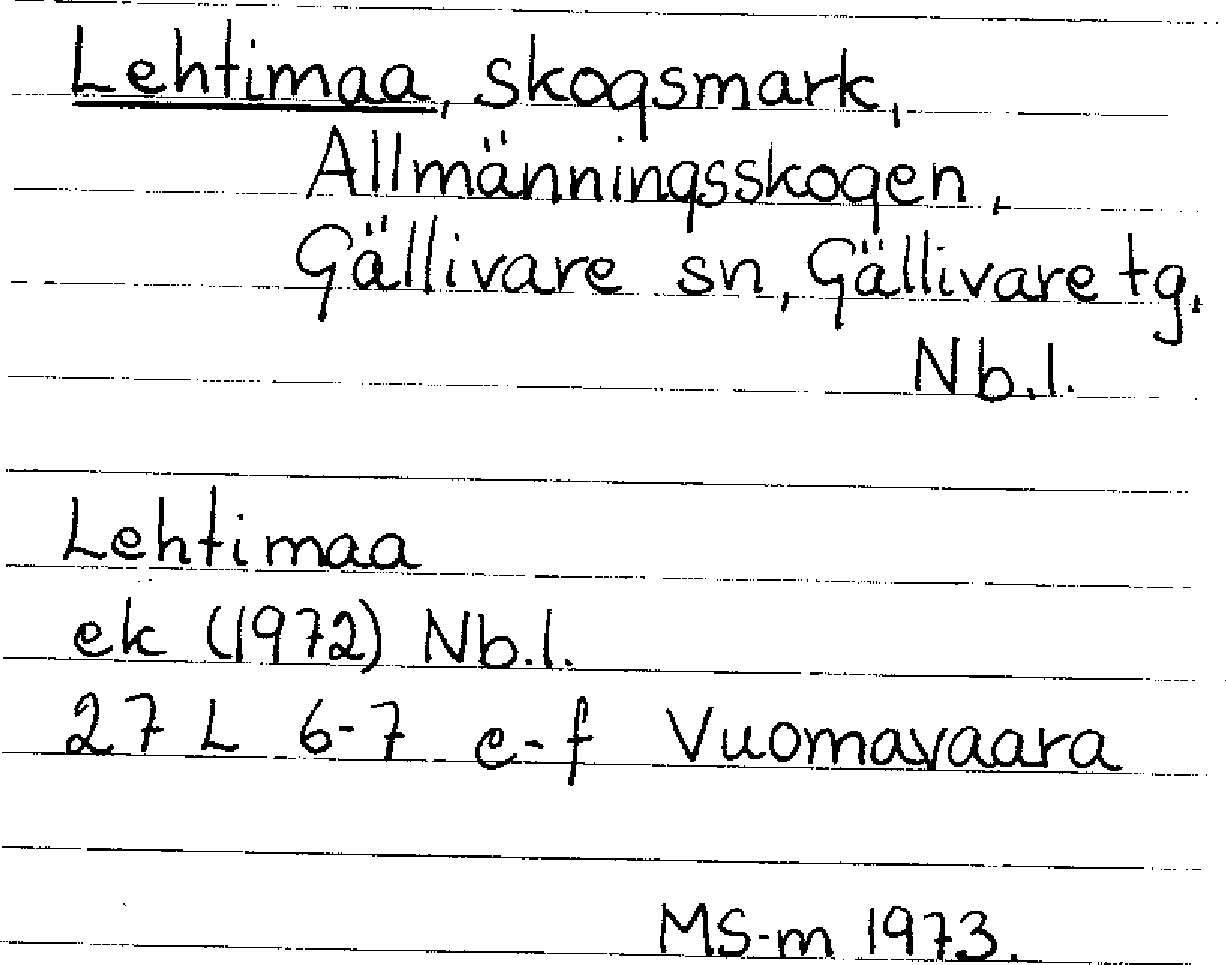 Lehtimaa, skogsmark,
Allmänningsskogen,
Gällivare sn, Gällivare tg,
Nb.l.
Lehtimaa
ek (1972) Nb.l.
27 L 6-7 e-f Vuomavaara
MS-m 1973.